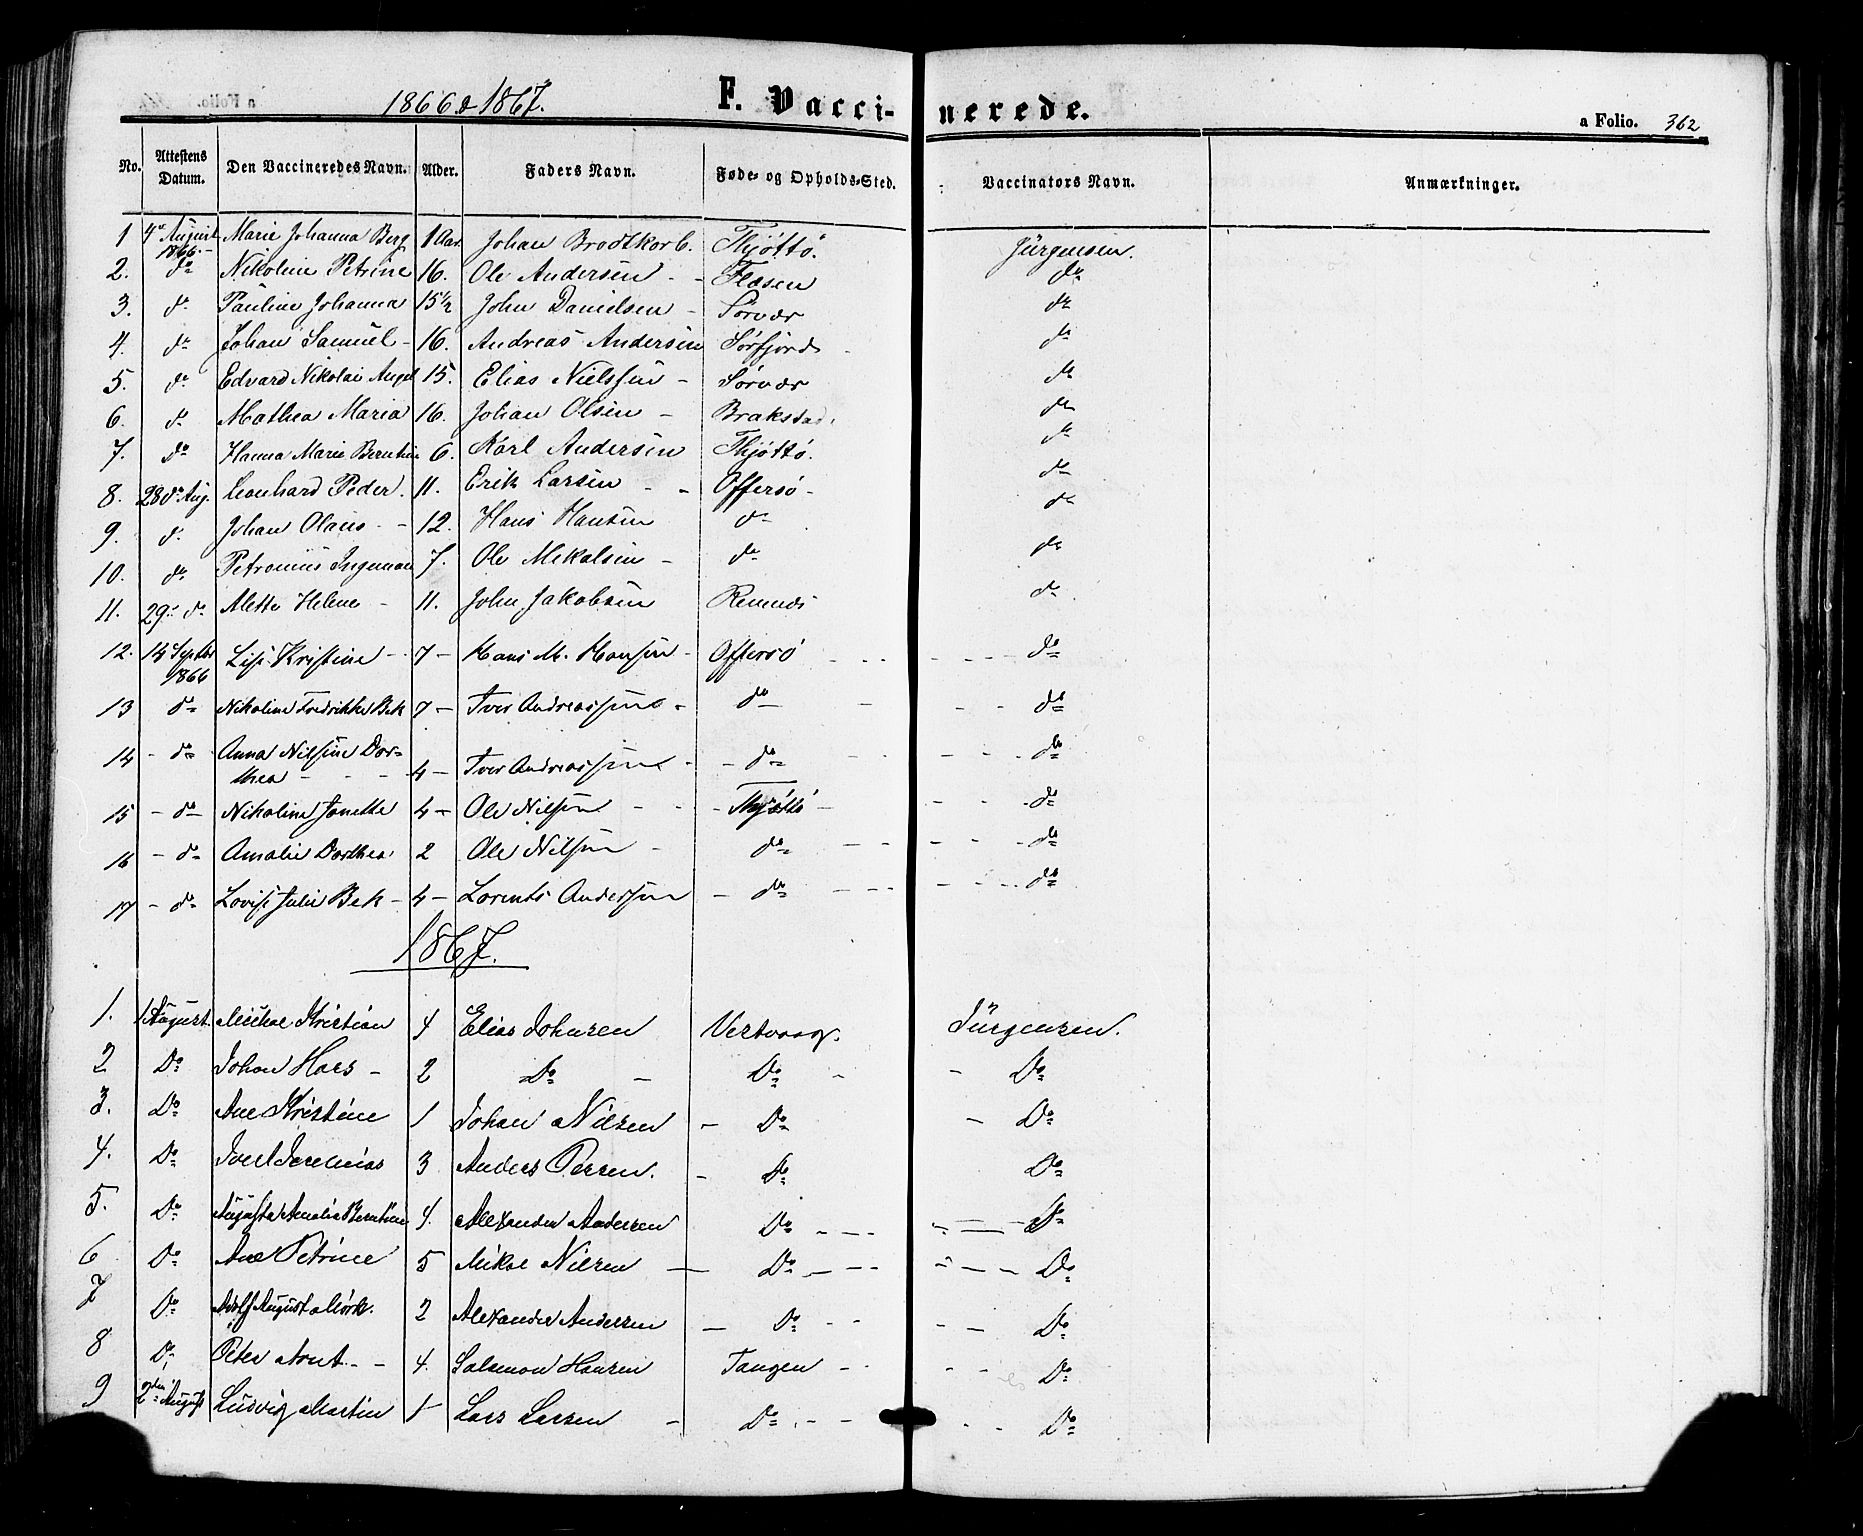 1866 & 1867. F. Vacci- nerede. a Folio. 362
No. Attestens Datum. Den Vaccineredes Navn. Alder. Faders Navn. Føde- og Opholds-Sted. Vaccinators Navn. Anmærkninger.
1 4de August 1866 Marie Johanna Berg 1 Aar. Johan Brodtkorb. Thjøttø. Jürgensen.
2. do Nikoline Petrine 16. Ole Andersen - - Flosen do
3. do Pauline Johanna 15½ John Danielsen - Sørvær do
4. do Johan Samuel - 16. Andreas Andersen Sørfjord do
5. do Edvard Nikolai Angel 15. Elias Nielssen - Sørvær do
6. do Mathea Maria 16. Johan Olsen - Brakstad. do
7. do Hanna Marie Berntine 6. Karl Andersen Thjøttø. do
8. 28de Aug. Leonhard Peder. 11. Erik Larsen - - Offersø - do
9. do Johan Olaus - - 12. Hans Hansen do do
10. do Petronius Ingeman 7. Ole Mekalsen - do do
11. 29. do Alette Helene - 11. John Jakobsen do
12. 14 Septbr 1866 Lise Kristine - 7 - Hans M. Hansen - Offersø do
13 do Nikoline Fredrikke Bek 7 - Iver Andreassen - do do
14 - do Anna Nilsine Dor-
thea - - - 4 - Iver Andreassen - - do do
15 - do Nikoline Janette 4 - Ole Nilsen - - - Thjøttø - do
16 - do Amalie Dorthea 2 Ole Nilsen - do do
17 - do Lovise Julie Bek - 4 - Lorents Anderssen - do do
1867.
1. 1 August. Mikal Kristian 4 Elias Johnsen Vestvaag. Jürgensen.
2 Do Johan Hars - 2 Do - Do - - Do
3. Do Ane Kristine 1 Johan Nilsen - Do - Do
4. Do Joel Jeremias 3 Anders Persen. - Do Do
5. Do Augusta Amalia Berntine 4. Alexander Andersen Do Do
6 Do Ane Petrine 5 Mikal Nilsen - Do Do
7 Do Adolf August Mörk. 2 Alexander Andersen - Do Do
8 Do Peter Arnt - - 4. Salamon Hansen Tangen - - Do
9 2den August Ludvig Martin 1 Lars Larsen - Do Do